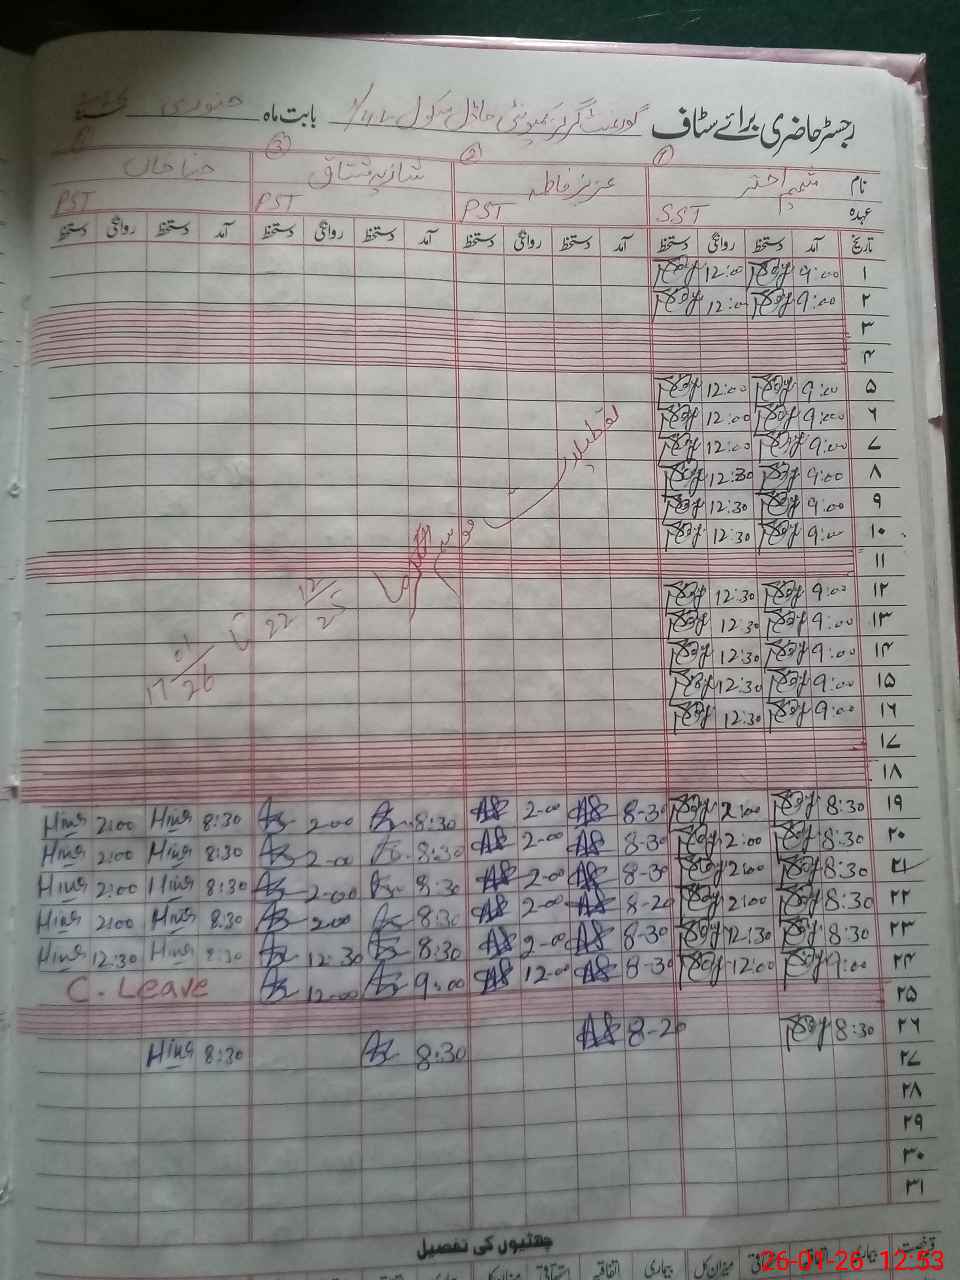 رجسٹر حاضری برائے سٹاف گورنمنٹ گرلز کمیونٹی ماڈل سکول بابت ماہ جنوری
نام شمیم اختر ① عزیز فاطمہ ② شازیہ مشتاق ③ حنا خان
عہدہ SST PST PST PST
تاریخ آمد دستخط روانگی دستخط آمد دستخط روانگی دستخط آمد دستخط روانگی دستخط آمد دستخط روانگی دستخط
۱ 9:00 12:00
۲ 9:00 12:00
۳
۴
۵ 9:00 12:00
۶ 9:00 12:00
۷ 9:00 12:00
۸ 9:00 12:30
۹ 9:00 12:30
۱۰ 9:00 12:30
۱۱
۱۲ 9:00 12:30
۱۳ 9:00 12:30
۱۴ 9:00 12:30
۱۵ 9:00 12:30
۱۶ 9:00 12:30
تعطیلات موسم گرما 22 12/25 تا 17 01/26
۱۷
۱۸
۱۹ 8:30 2:00 8-30 2-00 8:30 2-00 8:30 Hina 2:00 Hina
۲۰ 8:30 2:00 8-30 2-00 8:30 2-00 8:30 Hina 2:00 Hina
۲۱ 8:30 2:00 8-30 2-00 8:30 2-00 8:30 Hina 2:00 Hina
۲۲ 8:30 2:00 8-20 2-00 8:30 2-00 8:30 Hina 2:00 Hina
۲۳ 8:30 12:30 8-30 2-00 8:30 12:30 8:30 Hina 12:30 Hina
۲۴ 9:00 12:00 8-30 12-00 9:00 12-00 C. Leave
۲۵
۲۶ 8:30 8-20 8:30 8:30 Hina
۲۷
۲۸
۲۹
۳۰
۳۱
چھٹیوں کی تفصیل
بیماری اتفاقیہ استحقاقی میزان کل بیماری اتفاقیہ استحقاقی میزان کل
26-01-26 12:53